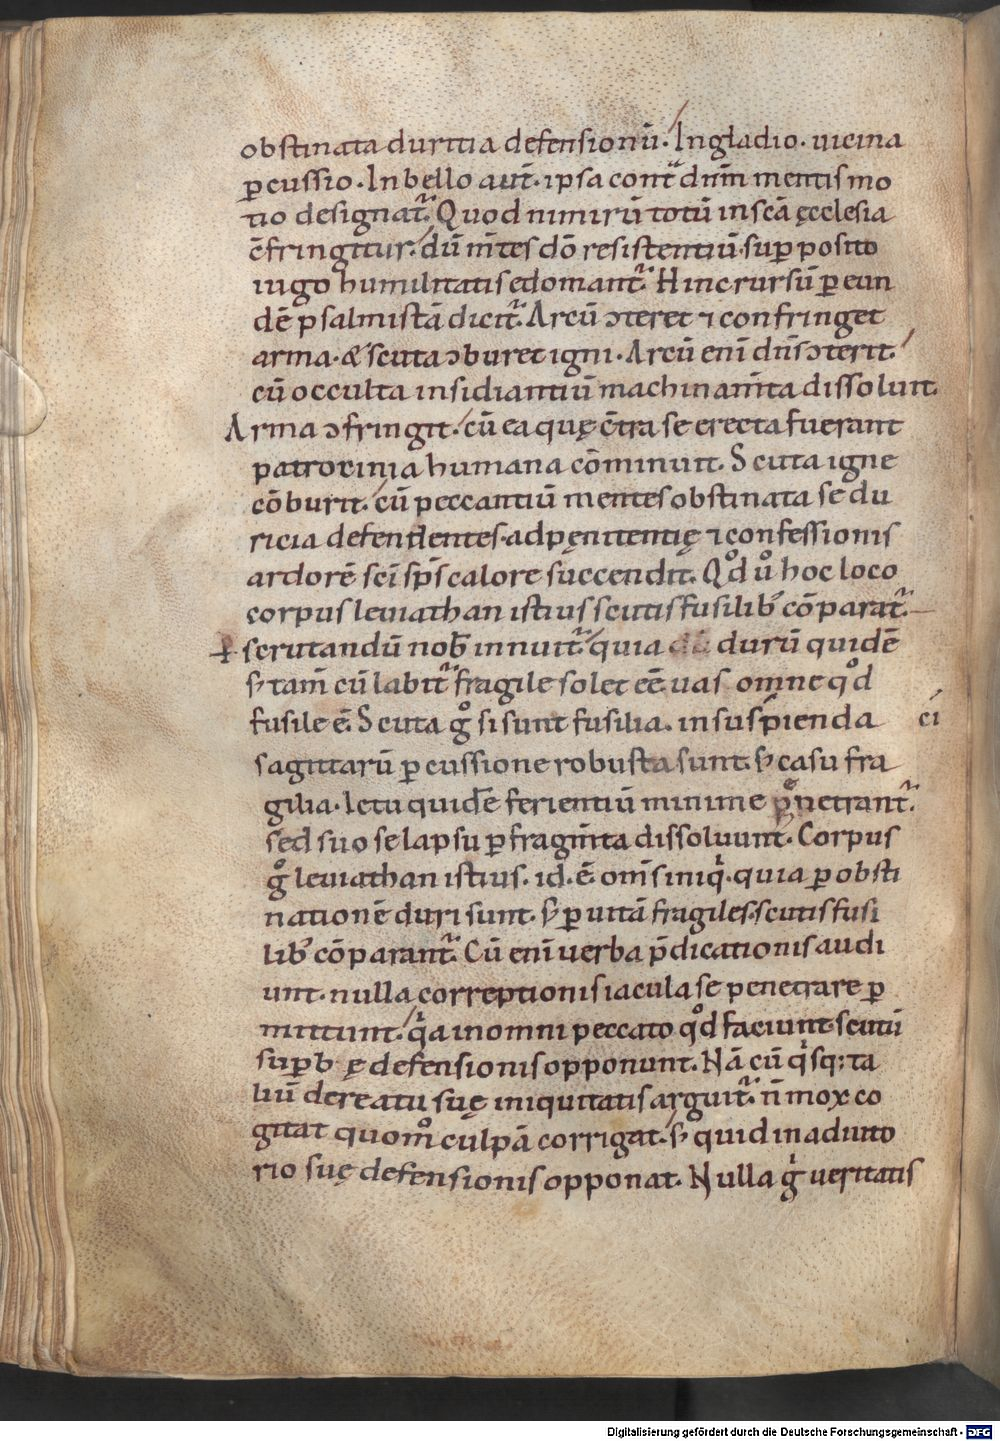 obstinata duritia defensionū. In gladio. uicina
ꝑcussio. In bello aut̄. ipsa cont͛ dn̄m mentis mo
tio designat͛. Quod nimirū totū in scā ęcclesia
c̄fringitur. dū m̄tes dō resistentiū. suꝑposito
iugo humilitatis edomant͛. Hinc rursū ꝑ eun
dē psalmistā dicit͛. Arcū ↄteret ⁊ confringet
arma. & scuta ↄburet igni. Arcū eni̅ dn̄s ↄterit.
cū occulta insidiantiū machinam̄ta dissoluit.
Arma ↄfringit. cū ea quę c̄tra se erecta fuerant
patrocinia humana cōminuit. Scuta igne
cōburit. cū peccantiū mentes obstinata se du
ricia defendentes. ad pęnitentię ⁊ confessionis
ardorē sci̅ sp̄s calore succendit. Qᵒd ůo hoc loco
corpus leuiathan istius scutis fusilib; cōparat͛.
scrutandū nob̄ innuit͛. quia durū quidē
s; tam̄ cū labit͛ fragile solet eē uas omne qᵒd
fusile ē. Scuta gᵒ si sunt fusilia. in suspienda ci̅
sagittarū ꝑcussione robusta sunt. s; casu fra
gilia. Ictu quidē ferientiū minime penetrant͛.
sed suo se lapsu ꝑ fragm̄ta dissoluunt. Corpus
gᵒ leuiathan istius. id. ē. om̄s iniqⁱ. quia ꝑ obsti
nationē duri sunt. s; ꝑ uitā fragiles. scutis fusi
lib; cōparant͛. Cū eni̅ uerba p̄dicationis audi
unt. nulla correptionis iacula se penetrare ꝑ
mittunt. qⁱa in omni peccato qᵒd faciunt scutū
suꝑbę defensionis opponunt. Nā cū qⁱsq; ta
liū de reatu suę iniquitatis arguit͛. n̄ mox co
gitat quomᵒ culpā corrigat. s; quid in adiuto
rio suę defensionis opponat. Nulla gⁱ ueritatis
Digitalisierung gefördert durch die Deutsche Forschungsgemeinschaft - DFG